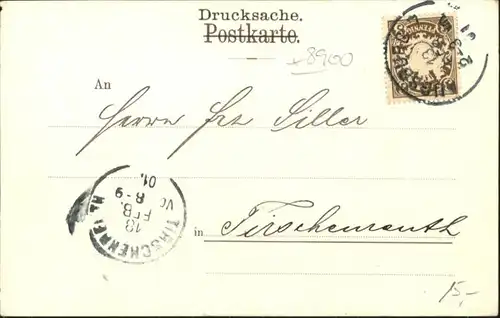 Drucksache.
Postkarte.
8900
An
Herrn Frz Siller
TIRSCHENREUTH
13
FEB.
8-9
01.
in Tirschenreuth
15,-